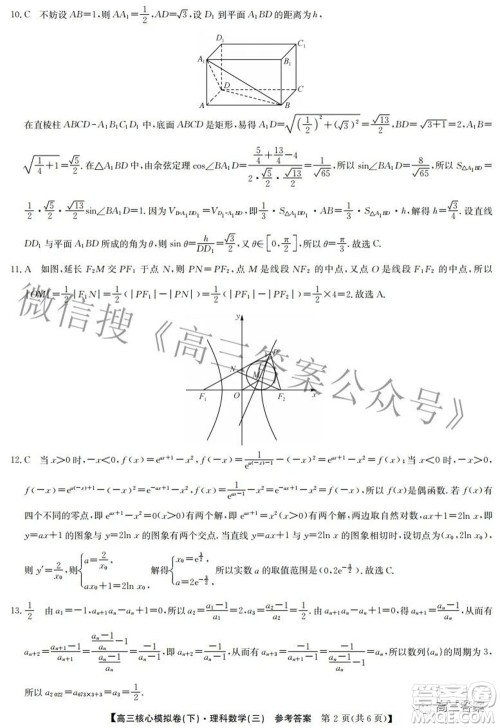 10. C　不妨设 AB=1,则 AA₁=1/2,AD=√3,设 D₁ 到平面 A₁BD 的距离为 h,
D₁
C₁
A₁
B₁
D
C
A
B
在直棱柱 ABCD-A₁B₁C₁D₁ 中,底面 ABCD 是矩形,易得 A₁D=√((1/2)²+(√3)²)=√13/2,BD=√(3+1)=2,A₁B=
√(1/4+1)=√5/2. 在△A₁BD 中,由余弦定理 cos∠BA₁D=(5/4+13/4-4)/(2·√5/2·√13/2)=1/√65,所以 sin∠BA₁D=8/√65,所以 S△A₁BD=
1/2·√5/2·√13/2 sin∠BA₁D=1. 因为 V_B-A₁DD₁=V_D₁-A₁BD,即 1/3·S△A₁DD₁·AB=1/3·S△A₁BD·h,解得 h=√3/4. 设直线
DD₁ 与平面 A₁BD 所成的角为 θ,则 sin θ=h/DD₁=√3/2,又 θ∈[0,π/2],所以 θ=π/3. 故选 C.
11. A　如图,延长 F₂M 交 PF₁ 于点 N,则 PN=PF₂,点 M 是线段 NF₂ 的中点,又点 O 是线段 F₁F₂ 的中点,所以
|OM|=1/2|F₁N|=1/2(|PF₁|-|PN|)=1/2(|PF₁|-|PF₂|)=1/2×4=2. 故选 A.
y
P
N
M
F₁
O
F₂
x
12. C　当 x>0 时,-x<0,f(x)=e^(ax+1)-x²,f(-x)=1/e^(a(-x)-1)-(-x)²=e^(ax+1)-x²=f(x),当 x<0 时,-x>0,
f(-x)=e^(a(-x)+1)-(-x)²=e^(-ax+1)-x²,f(x)=1/e^(ax-1)-x²=e^(-ax+1)-x²=f(-x),所以 f(x)是偶函数. 若 f(x)有
四个不同的零点,即 e^(ax+1)-x²=0(x>0)有两个解,即 e^(ax+1)=x²(x>0)有两个解,两边取自然对数,ax+1=2ln x,即
y=ax+1 的图象与 y=2ln x 的图象有两个交点. 当直线 y=ax+1 与 y=2ln x 的图象相切时,设切点为(x₀,ax₀+1),
则 y′=2/x₀,则{a=2/x₀, ax₀+1=2ln x₀,解得{x₀=e^(3/2), a=2e^(-3/2),所以实数 a 的取值范围是(0,2e^(-3/2)). 故选 C.
13. 1/2　由 a₁=-1,aₙ₊₁aₙ-aₙ+1=0,所以 a₂=(a₁-1)/a₁=2,又由 aₙ₊₁aₙ-aₙ+1=0,得 aₙ₊₁=(aₙ-1)/aₙ,从而有
aₙ₊₂=(aₙ₊₁-1)/aₙ₊₁=((aₙ-1)/aₙ-1)/((aₙ-1)/aₙ)=(-1/aₙ)/((aₙ-1)/aₙ)
【高三核心模拟卷(下)·理科数学(三)　参考答案　第 2 页(共 6 页)】
微信搜《高三答案公众号》